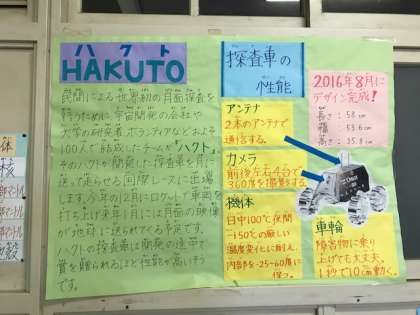 ハクト
HAKUTO
民間による世界初の月面探査を
行うために、宇宙開発の会社や
大学の研究者、ボランティアなどおよそ
100人で結成したチームが「ハクト」。
そのハクトが開発した探査車を月に
送って走らせる国際レースに出場
します。今年の12月にロケットで車両を
打ち上げ来年1月には月面の映像
が地球に送られてくる予定です。
ハクトの探査車は開発の途中で
賞を贈られるほど性能が高いそう
です。
探査車の
性能
2016年8月に
デザイン完成!
長さ:58cm
幅:53.6cm
高さ:35.8cm
アンテナ
2本のアンテナで
通信する。
カメラ
前後左右4台で
360度を撮影する。
機体
日中100℃夜間
-150℃の厳しい
温度変化に耐え、
内部を-25~60度に
保つ。
車輪
障害物に乗り
上げても大丈夫。
1秒で10cm動く。
体
核